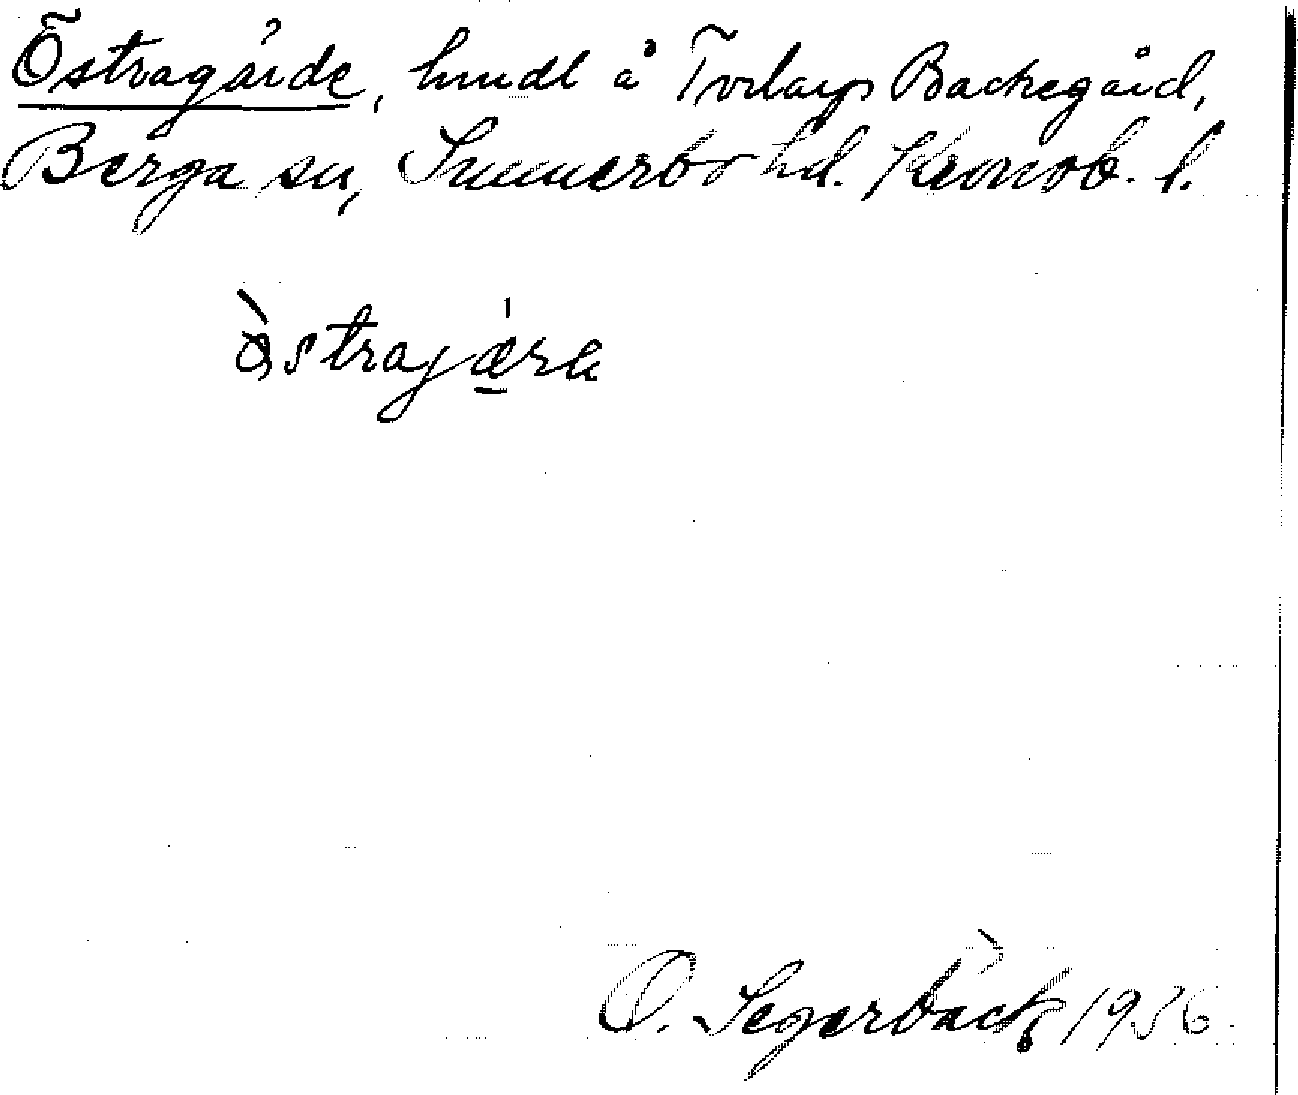 Östragärde, hmdl å Torlarp Backegård,
Berga sn, Sunnerbo hd. Kronob. l.
östrajärä
O. Segerbäck 1936.